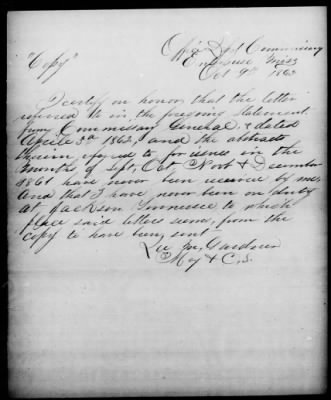 Office Dept Commissary
Enterprise Miss
Oct 9th 1862
"Copy"
I certify on honor that the letter
referred to in the foregoing statement
from Commissary General & dated
April 3d 1862, and the abstracts
therein referred to for issues in the
months of Sept, Oct Novb & December
1861 have never been received by me,
And that I have never been on duty
at Jackson Tennessee to which
place said letters seems, from the
copy to have been sent
Gardner
Maj & C.S.